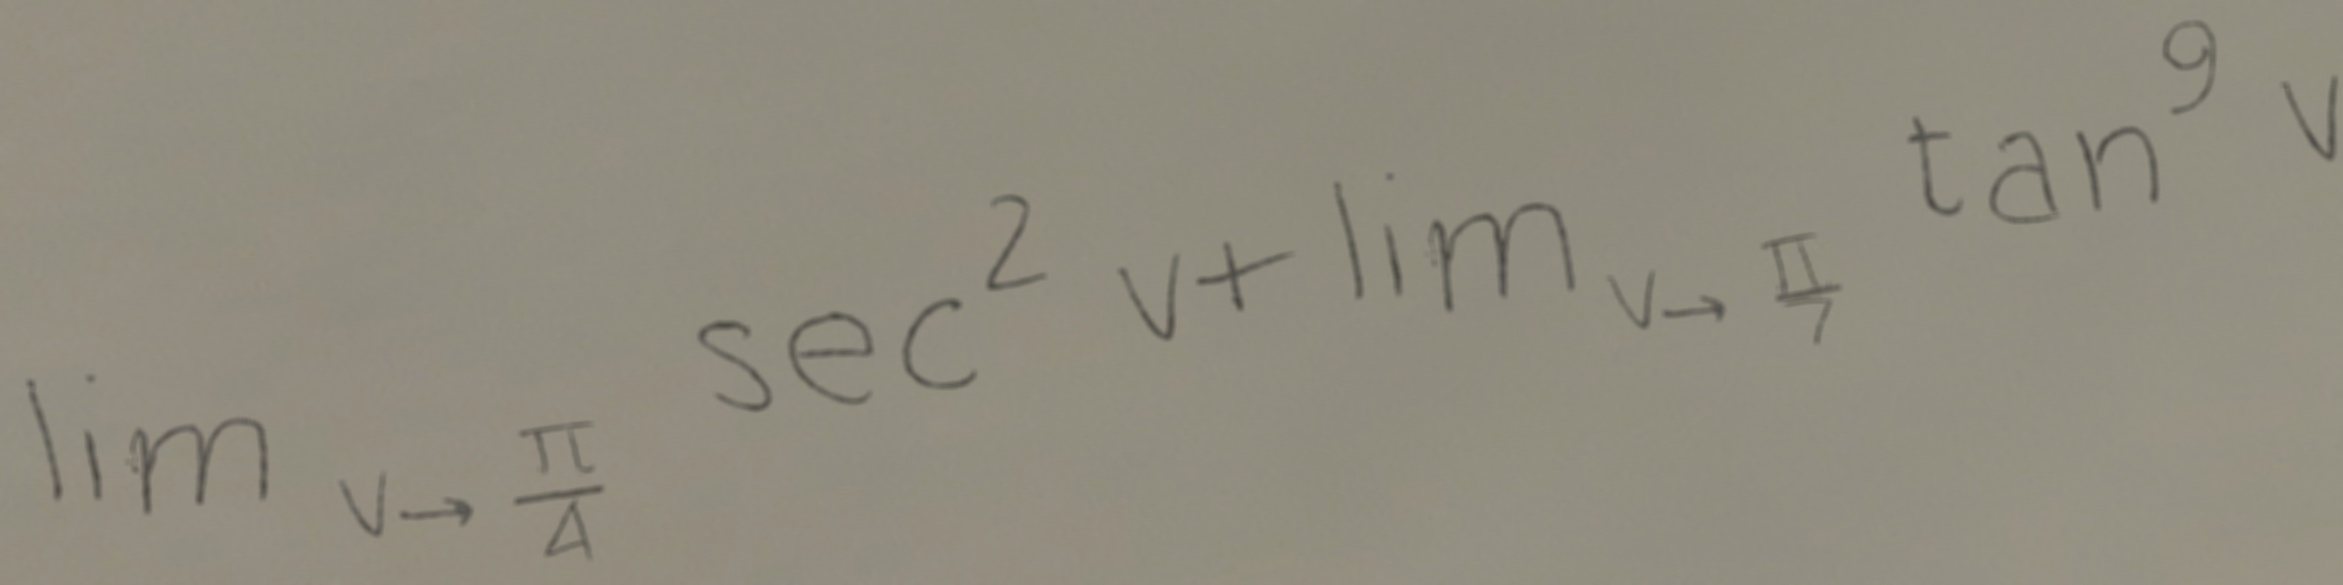 lim v→π/4 sec^2 v+lim v→π/7 tan^9 v